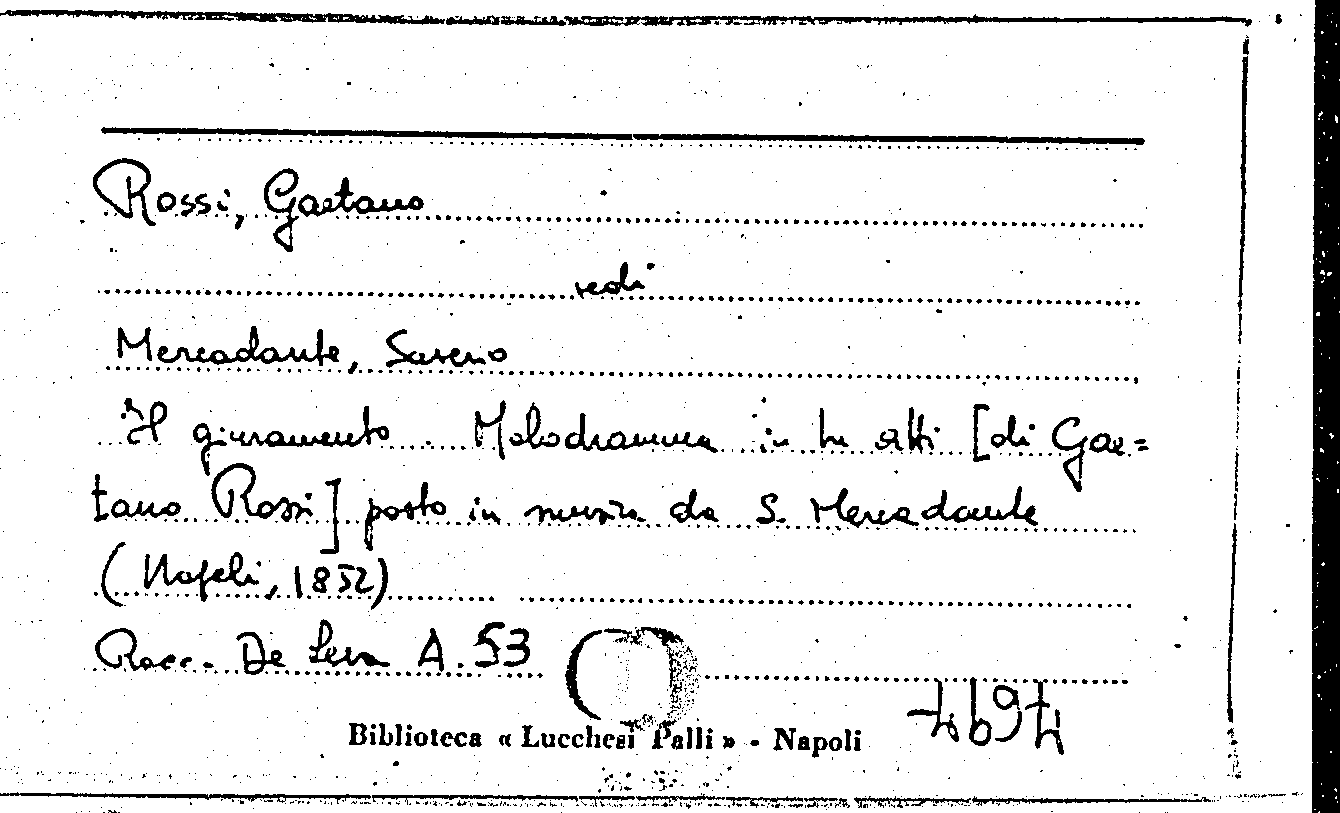 Rossi, Gaetano
vedi
Mercadante, Saverio
Il giuramento. Melodramma in tre atti [di Gae=
tano Rossi] posto in musica da S. Mercadante
(Napoli, 1852)
Racc. De Leva A.53
Biblioteca « Lucchesi Palli » - Napoli